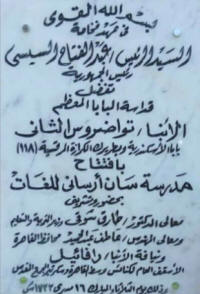 بسم الله القوى
فى عهد فخامة
السيد الرئيس / عبد الفتاح السيسى
رئيس الجمهورية
تفضل
قداسة البابا المعظم
الأنبا / تواضروس الثانى
بابا الأسكندرية وبطريرك الكرازة المرقسية (١١٨)
بافتتاح
مدرسة سان أرساني للغات
بحضور وتشريف
معالى الدكتور / طارق شوقى وزير التربية والتعليم
ومعالى المهندس / عاطف عبد الحميد محافظ القاهرة
ونيافة الأنبا / رافائيل
الأسقف العام لكنائس وسط القاهرة وسكرتير المجمع المقدس
وذلك يوم المبارك ١٦ مسرى ١٧٣٣